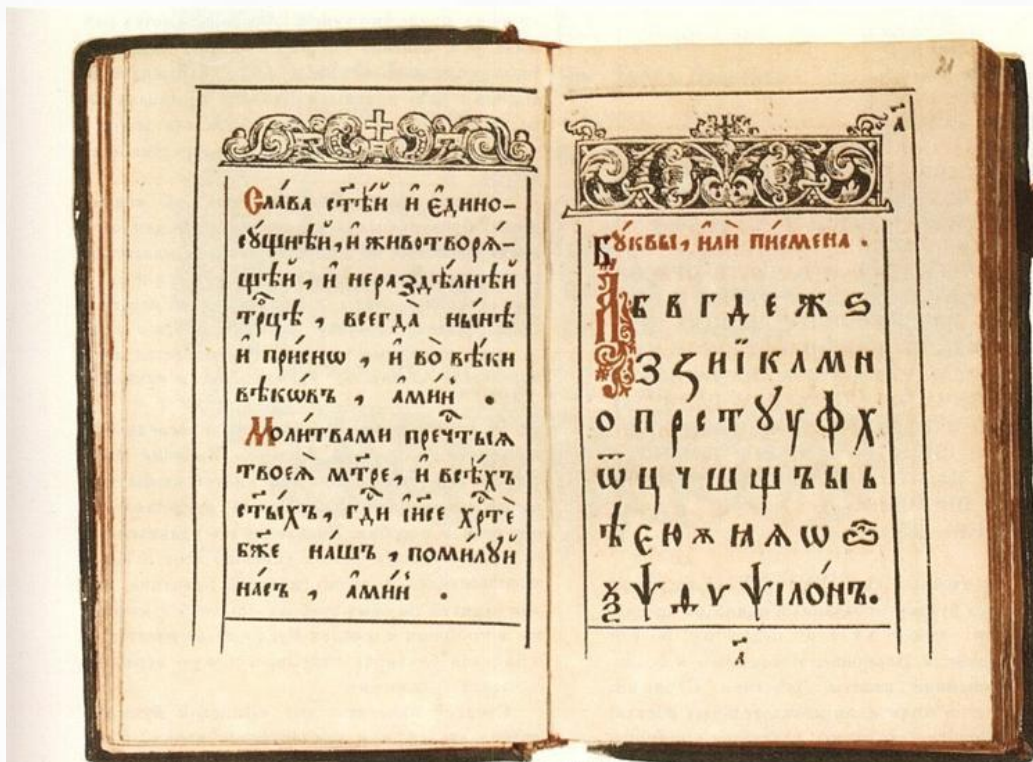 Сла́ва ст҃ѣ́й и҆ є҆дино-
сꙋ́щнѣй, и҆ животворѧ́-
щѣй, и҆ нераздѣ́лнѣй
трⷪ҇цѣ, всегда̀ ны́нѣ
и҆ при́снѡ, и҆ во вѣ́ки
вѣкѡ́въ, а҆ми́нь.
Моли́твами пречⷭ҇тыѧ
твоеѧ̀ мт҃ре, и҆ всѣ́хъ
ст҃ы́хъ, гдⷭ҇и і҆и҃се хрⷭ҇тѐ
бж҃е на́шъ, поми́лꙋй
на́съ, а҆ми́нь.
21
а҃
Бꙋ́квы, и҆лѝ пи́смена.
А Б В Г Д Е Ж Ѕ
З Ꙁ И Ї К Л М Н
О П Р С Т Ꙋ У Ф Х
Ѿ Ц Ч Ш Щ Ъ Ы Ь
Ѣ Є Ю Ѫ Ꙗ Ѧ Ѡ
Ѯ Ѱ Ѳ Ѵ Ѱїло́нъ.
а҃